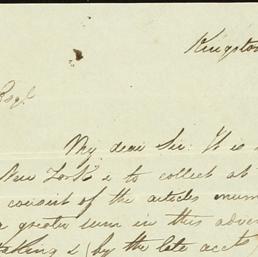 Kingston
Esq.
My dear Sir: It is
New York & to collect at
consist of the articles enum
a greater sum in this adver
taking & (by the late accts